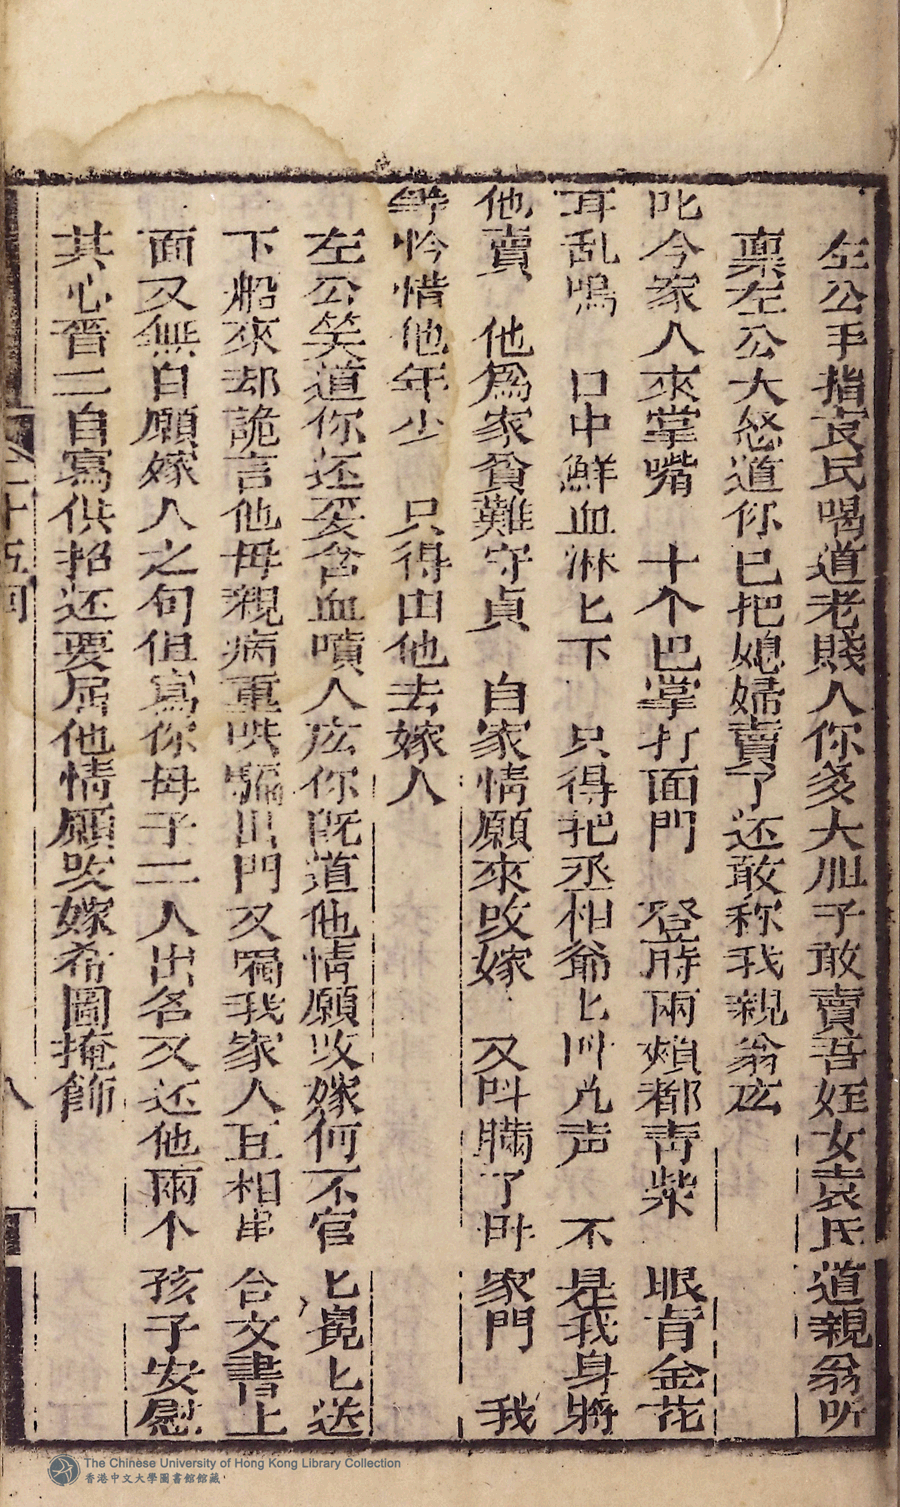 左公手指袁氏喝道老賤人你多大胆子敢賣吾姪女袁氏道親翁听
禀左公大怒道你已把媳婦賣了还敢称我親翁庅
叱今家人來掌嘴　十个巴掌打面門　登時兩頰都青柴　眼有金花
耳乱鳴　口中鮮血淋匕下　只得把丞相爺匕叫凢声　不是我身將
他賣　他爲家貧難守貞　自家情願來改嫁　又呌瞞了 家門　我
怜惜他年少　只得由他去嫁人
左公笑道你还要含血噴人庅你既道他情願改嫁何不官匕冕匕送
下船來却詭言他母親病重哄騙出門又囑我家人互相串合文書上
面又無自願嫁人之句但寫你母子二人出名又还他兩个孩子安慰
其心晋二自寫供招还要屈他情願改嫁希圖掩飾
之十五回
八
The Chinese University of Hong Kong Library Collection
香港中文大學圖書館館藏